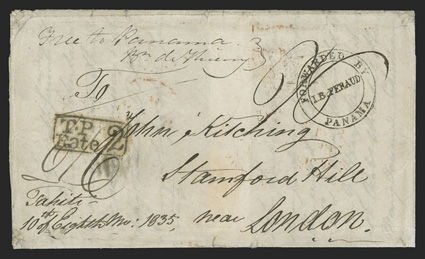 Free to Panama
Bn. de Thierry
FORWARDED BY
I.B. FERAUD
PANAMA
To
John Kitching
T.P
Rate 2
Stamford Hill
Tahiti
10th of Eighth Mo: 1835,
near London.